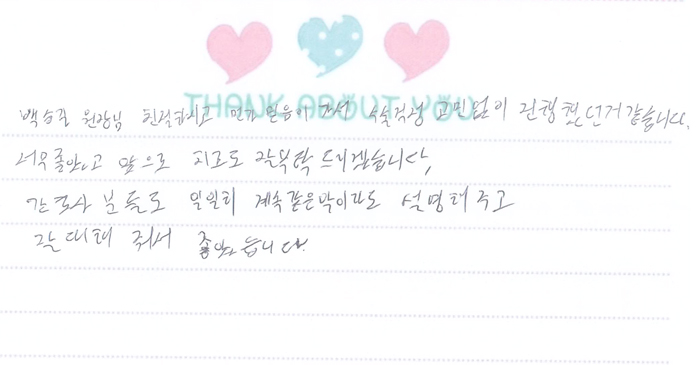 THANK ABOUT YOU
원장님 친절하시고 믿음이 가서 시술걱정 고민없이 진행했던거같습니다.
너무좋았고 앞으로 치료도 잘부탁 드리겠습니다,
간호사 분들도 일일히 계속같은말이라도 설명해주고
잘 대해 줘서 좋았습니다.